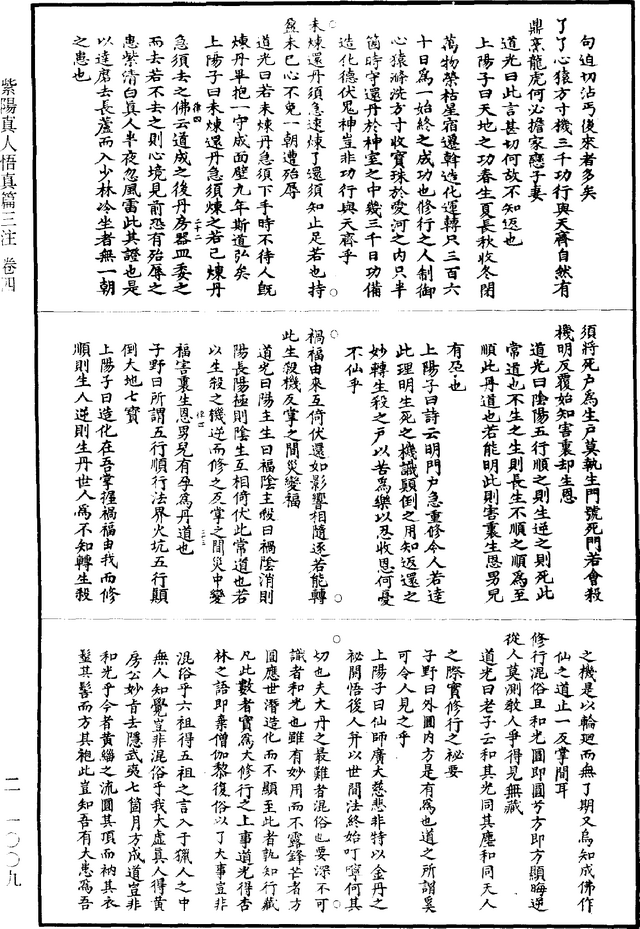 紫陽真人悟真篇三注 卷四
二一一〇〇九
句迫切沾丐後來者多矣
了了心猿方寸機三千功行與天齊自然有
鼎烹龍虎何必擔家戀子妻
道光曰此言甚切何故不知返也
上陽子曰天地之功春生夏長秋收冬閉
萬物榮枯星宿遷斡造化運轉只三百六
十日為一始終之成功也修行之人制御
心猿滌洗方寸收寶珠於愛河之內只半
箇時守還丹於神室之中幾三千日功備
造化德伏鬼神豈非功行與天齊乎
未煉還丹須急速煉了還須知止足若也持
盈未已心不免一朝遭殆辱
道光曰若未煉丹急須下手時不待人旣
煉丹畢抱一守成面壁九年斯道弘矣
上陽子曰未煉還丹急須煉之若已煉丹
急須去之佛云道成之後丹房器皿委之
而去若不去之則心境見前恐有殆辱之
患紫清白真人半夜忽風雷此其證也是
以達磨去長蘆而入少林冷坐者無一朝
之患也
須將死戶為生戶莫執生門號死門若會殺
機明反覆始知害裏却生恩
道光曰陰陽五行順之則生逆之則死此
常道也不生之生則長生不順之順為至
順此丹道也若能明此則害裏生恩男兒
有孕也
上陽子曰詩云明門戶急重修令人若達
此理明生死之機識顛倒之用知返還之
妙轉生殺之戶以苦為樂以忍收恩何憂
不仙乎
禍福由來互倚伏還如影響相隨逐若能轉
此生殺機反掌之間災變福
道光曰陽主生曰福陰主殺曰禍陰消則
陽長陽極則陰生互相倚伏此常道也若
以生殺之機逆而修之反掌之間災中變
福害裏生恩男兒有孕為丹道也
子野曰所謂五行順行法界火坑五行顛
倒大地七寶
上陽子曰造化在吾掌握禍福由我而修
順則生人逆則生丹世人為不知轉生殺
之機是以輪廻而無了期又烏知成佛作
仙之道止一反掌間耳
修行混俗且和光圓即圓兮方即方顯晦逆
從人莫測敎人爭得見無藏
道光曰老子云和其光同其塵和同天人
之際實修行之祕要
子野曰外圓內方是有為也道之所謂奚
可令人見之乎
上陽子曰仙師廣大慈悲非特以金丹之
祕開悟後人并以世間法終始叮嚀何其
切也夫大丹之最難者混俗也要深不可
識者和光也雖有妙用而不露鋒芒者方
圓應世潛造化而不顯至此者孰知行藏
凡此數者實為大修行之上事道光得杏
林之語即棄僧伽黎復俗以了大事豈非
混俗乎六祖得五祖之言入于獵人之中
無人知覺豈非混俗乎我大虛真人得黃
房公妙旨去隱武夷七箇月方成道豈非
和光乎今者黃緇之流圓其頂而衲其衣
髽其髻而方其袍此豈知吾有大患為吾